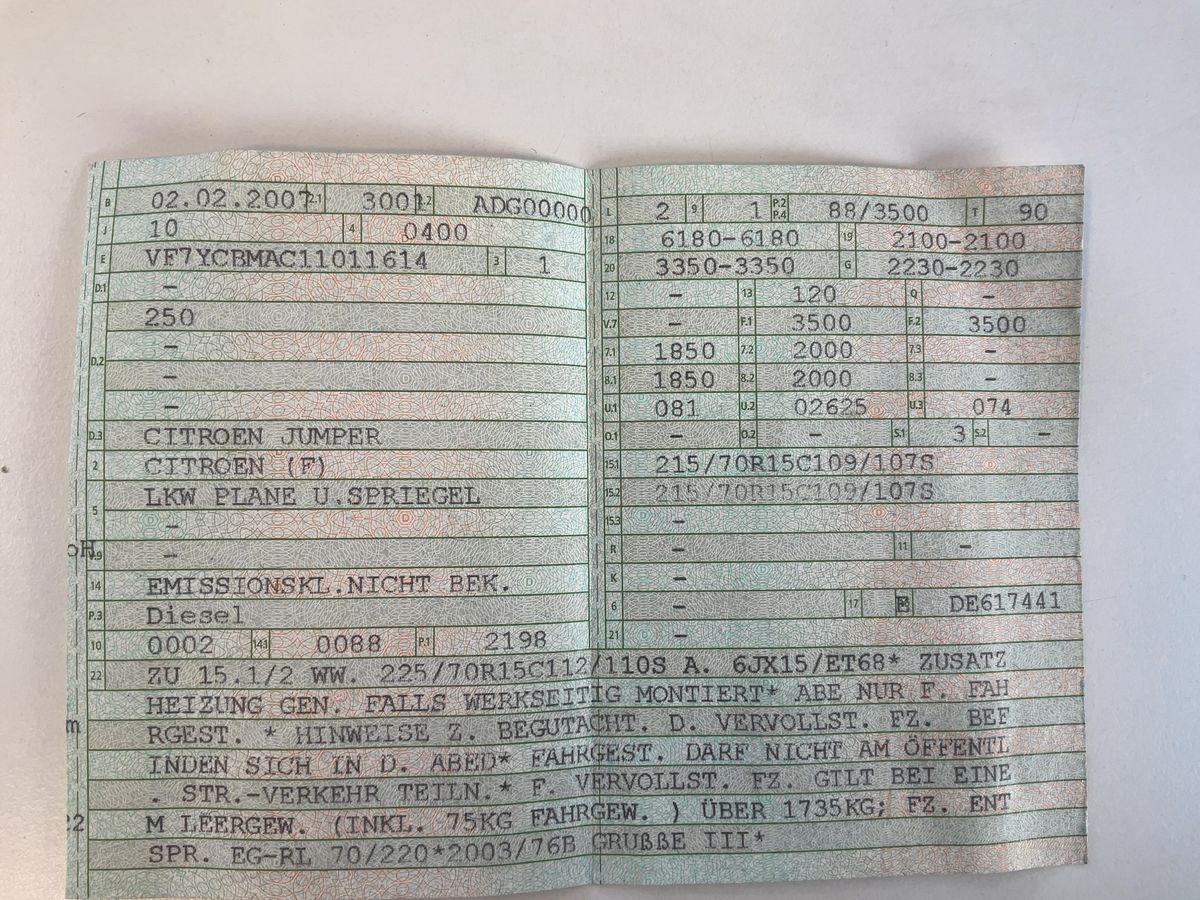 B 02.02.2007 2.1 3001 2.2 ADG00000
J 10 4 0400
E VF7YCBMAC11011614 3 1
D.1 –
250
D.2 –
–
–
D.3 CITROEN JUMPER
2 CITROEN (F)
5 LKW PLANE U.SPRIEGEL
–
V.9 –
14 EMISSIONSKL.NICHT BEK.
P.3 Diesel
10 0002 14.1 0088 P.1 2198
L 2 9 1 P.2 P.4 88/3500 T 90
18 6180-6180 19 2100-2100
20 3350-3350 G 2230-2230
12 – 13 120 Q –
V.7 – F.1 3500 F.2 3500
7.1 1850 7.2 2000 7.3 –
8.1 1850 8.2 2000 8.3 –
U.1 081 U.2 02625 U.3 074
O.1 – O.2 – S.1 3 S.2 –
15.1 215/70R15C109/107S
15.2 215/70R15C109/107S
15.3 –
R – 11 –
K –
6 – 17 E 16 DE617441
21 –
22 ZU 15.1/2 WW. 225/70R15C112/110S A. 6JX15/ET68* ZUSATZ
HEIZUNG GEN. FALLS WERKSEITIG MONTIERT* ABE NUR F. FAH
RGEST. * HINWEISE Z. BEGUTACHT. D. VERVOLLST. FZ. BEF
INDEN SICH IN D. ABED* FAHRGEST. DARF NICHT AM ÖFFENTL
. STR.-VERKEHR TEILN.* F. VERVOLLST. FZ. GILT BEI EINE
M LEERGEW. (INKL. 75KG FAHRGEW. ) ÜBER 1735KG; FZ. ENT
SPR. EG-RL 70/220*2003/76B GRUßßE III*